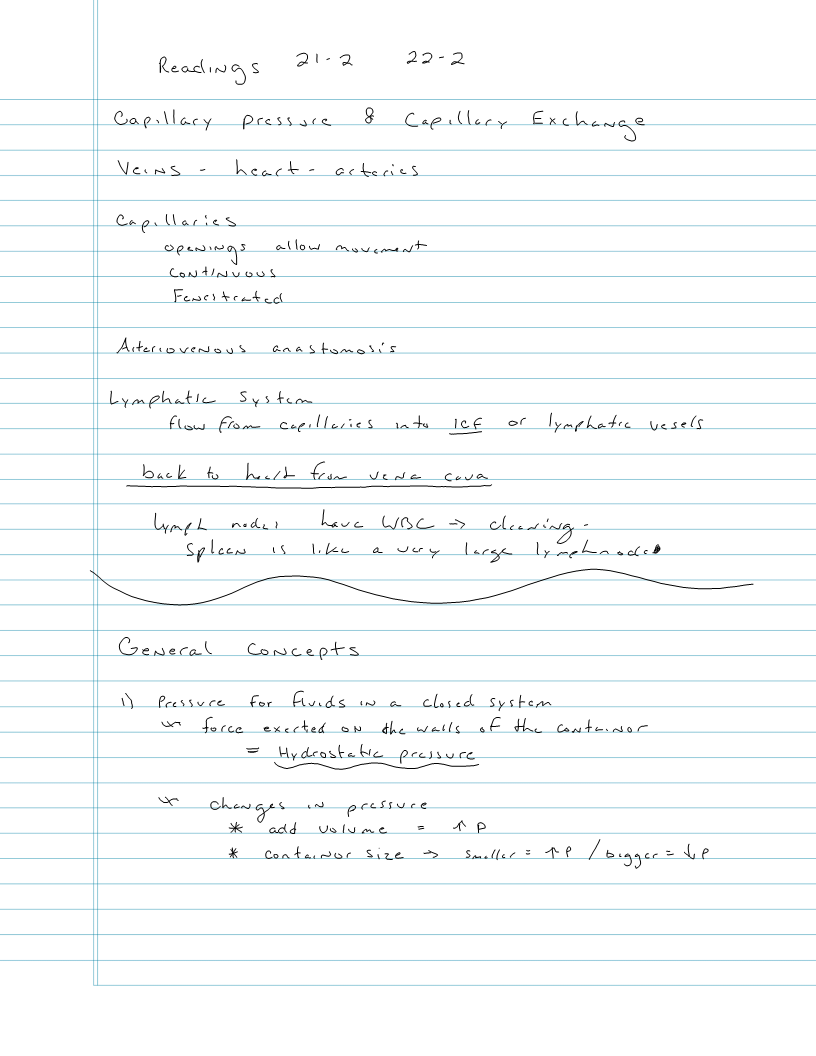 Readings 21-2 22-2
Capillary pressure & Capillary Exchange
Veins - heart - arteries
Capillaries
openings allow movement
continuous
Fenestrated
Arteriovenous anastomosis
Lymphatic System
flow from capillaries into ICF or lymphatic vesels
back to heart from vena cava
lymph nodes have WBC → cleaning -
Spleen is like a very large lymphnode
General Concepts
1) Pressure for fluids in a closed system
* force exerted on the walls of the containor
= Hydrostatic pressure
* changes in pressure
* add volume = ↑ P
* containor size → smaller = ↑ P / bigger = ↓ P